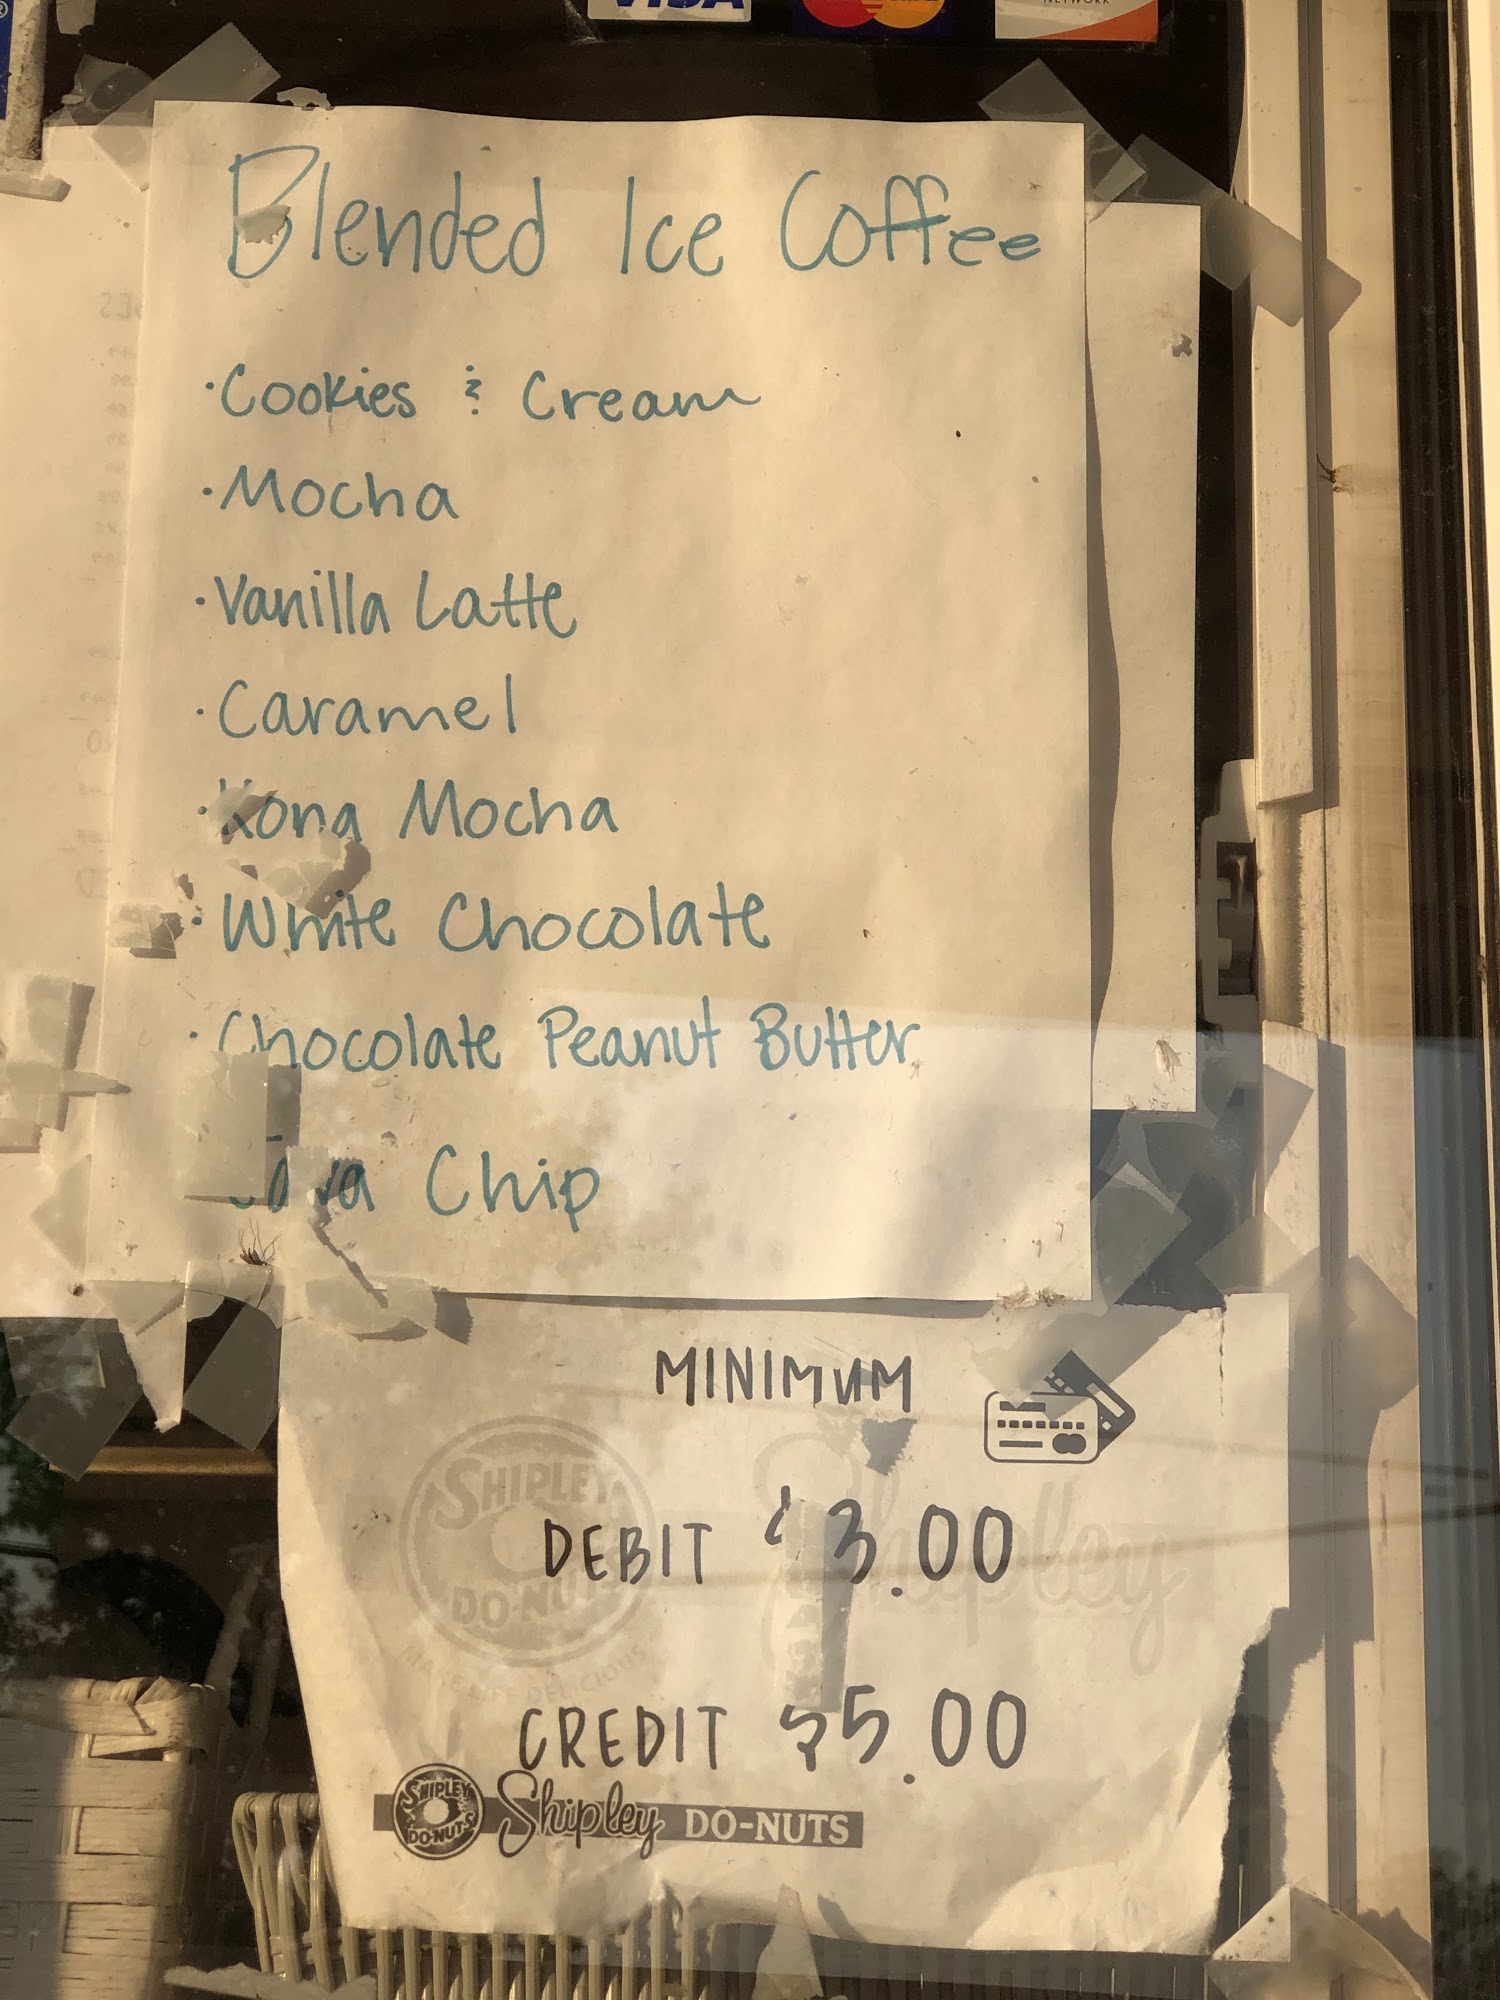 VISA
NETWORK
Blended Ice Coffee
· Cookies & Cream
· Mocha
· Vanilla Latte
· Caramel
· Kona Mocha
· White Chocolate
· Chocolate Peanut Butter
Java Chip
MINIMUM
DEBIT $3.00
CREDIT $5.00
SHIPLEY
DO-NUTS
MAKE LIFE DELICIOUS
Shipley
SHIPLEY
DO-NUTS
Shipley DO-NUTS